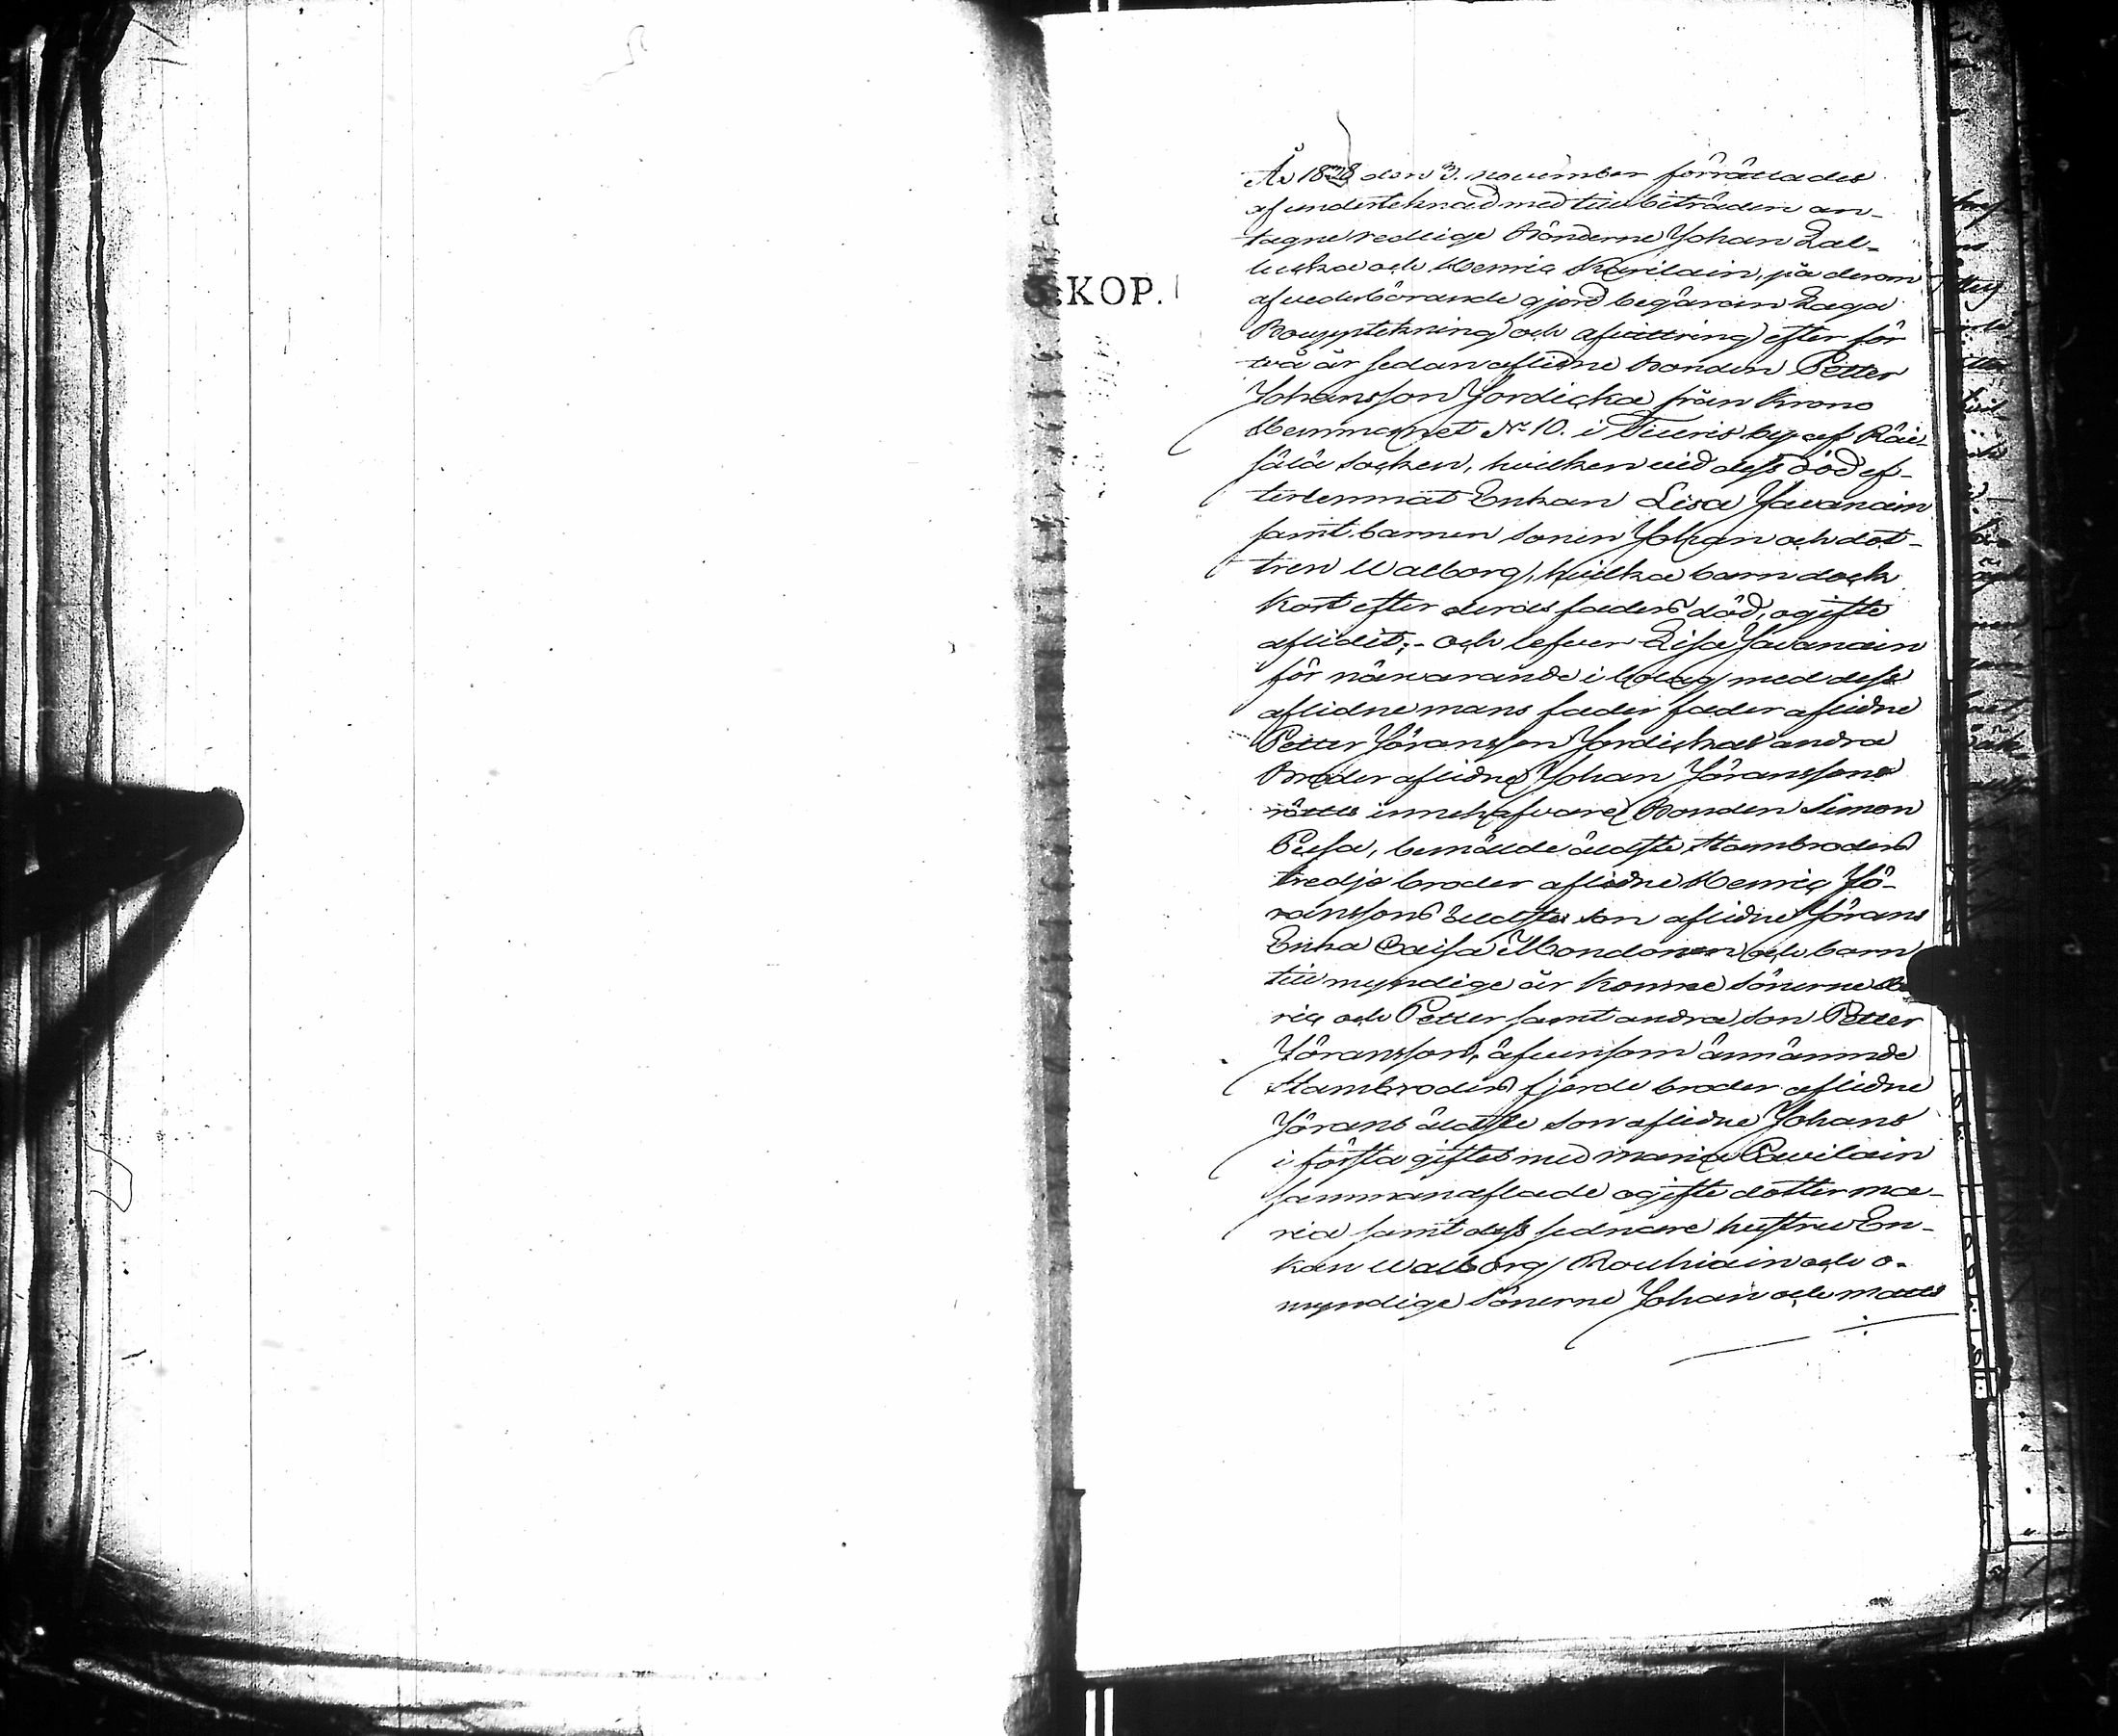 År 1828 den 3. november förrättades
af undertecknad med till biträden an-
tagne redlige Bönderne Johan Zal-
luska och Henric Kurilain, på derom
af vederbörande gjord begäran Laga
Bouppteckning och afvittring efter för
två år sedan aflidne Bonden Petter
Johansson Jordicka från Krono
Hemmanet No 10. i Tiuris by af Räi-
sälä Socken, hvilken vid dess död ef-
terlemnat Enkan Lisa Javanain
samt barnen sonen Johan och dot-
tren Walborg, hvilka barn dock
kort efter deras faders död, ogifte
aflidit; - och lefver Lisa Javanain
för närvarande i bolag med dess
aflidne mans fader fader aflidne
Petter Jöransson Jordickas andra
Broder aflidne Johan Jöranssons
rätts innehafvare Bonden Simon
Pusa, bemälde äldste Stambroders
tredje broder aflidne Henric Jö-
ranssons äldste son aflidne Jörans
Enka Caisa Hondonen och barn
till myndige år komne Sönerne
ric och Petter samt andra son Petter
Jöransson, äfvensom ännämnde
Stambroders fjerde broder aflidne
Jörans äldste son aflidne Johans
i första giftet med Maria Pavilain
sammanaflade ogifte dotter Ma-
ria samt dess sednare hustru En-
kan Walborg Rouhiain och o-
myndige Sönerne Johan och Mats
KOP.